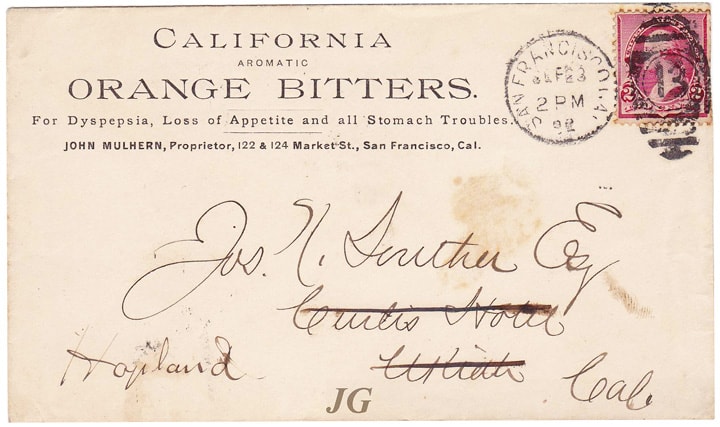 CALIFORNIA
AROMATIC
ORANGE BITTERS.
For Dyspepsia, Loss of Appetite and all Stomach Troubles.
JOHN MULHERN, Proprietor, 122 & 124 Market St., San Francisco, Cal.
SAN FRANCISCO, CAL.
FEB
2 PM
92
13
2 2
Jos. N. Souther Esq
Curtis Hotel
Hopland Ukiah Cal.
JG